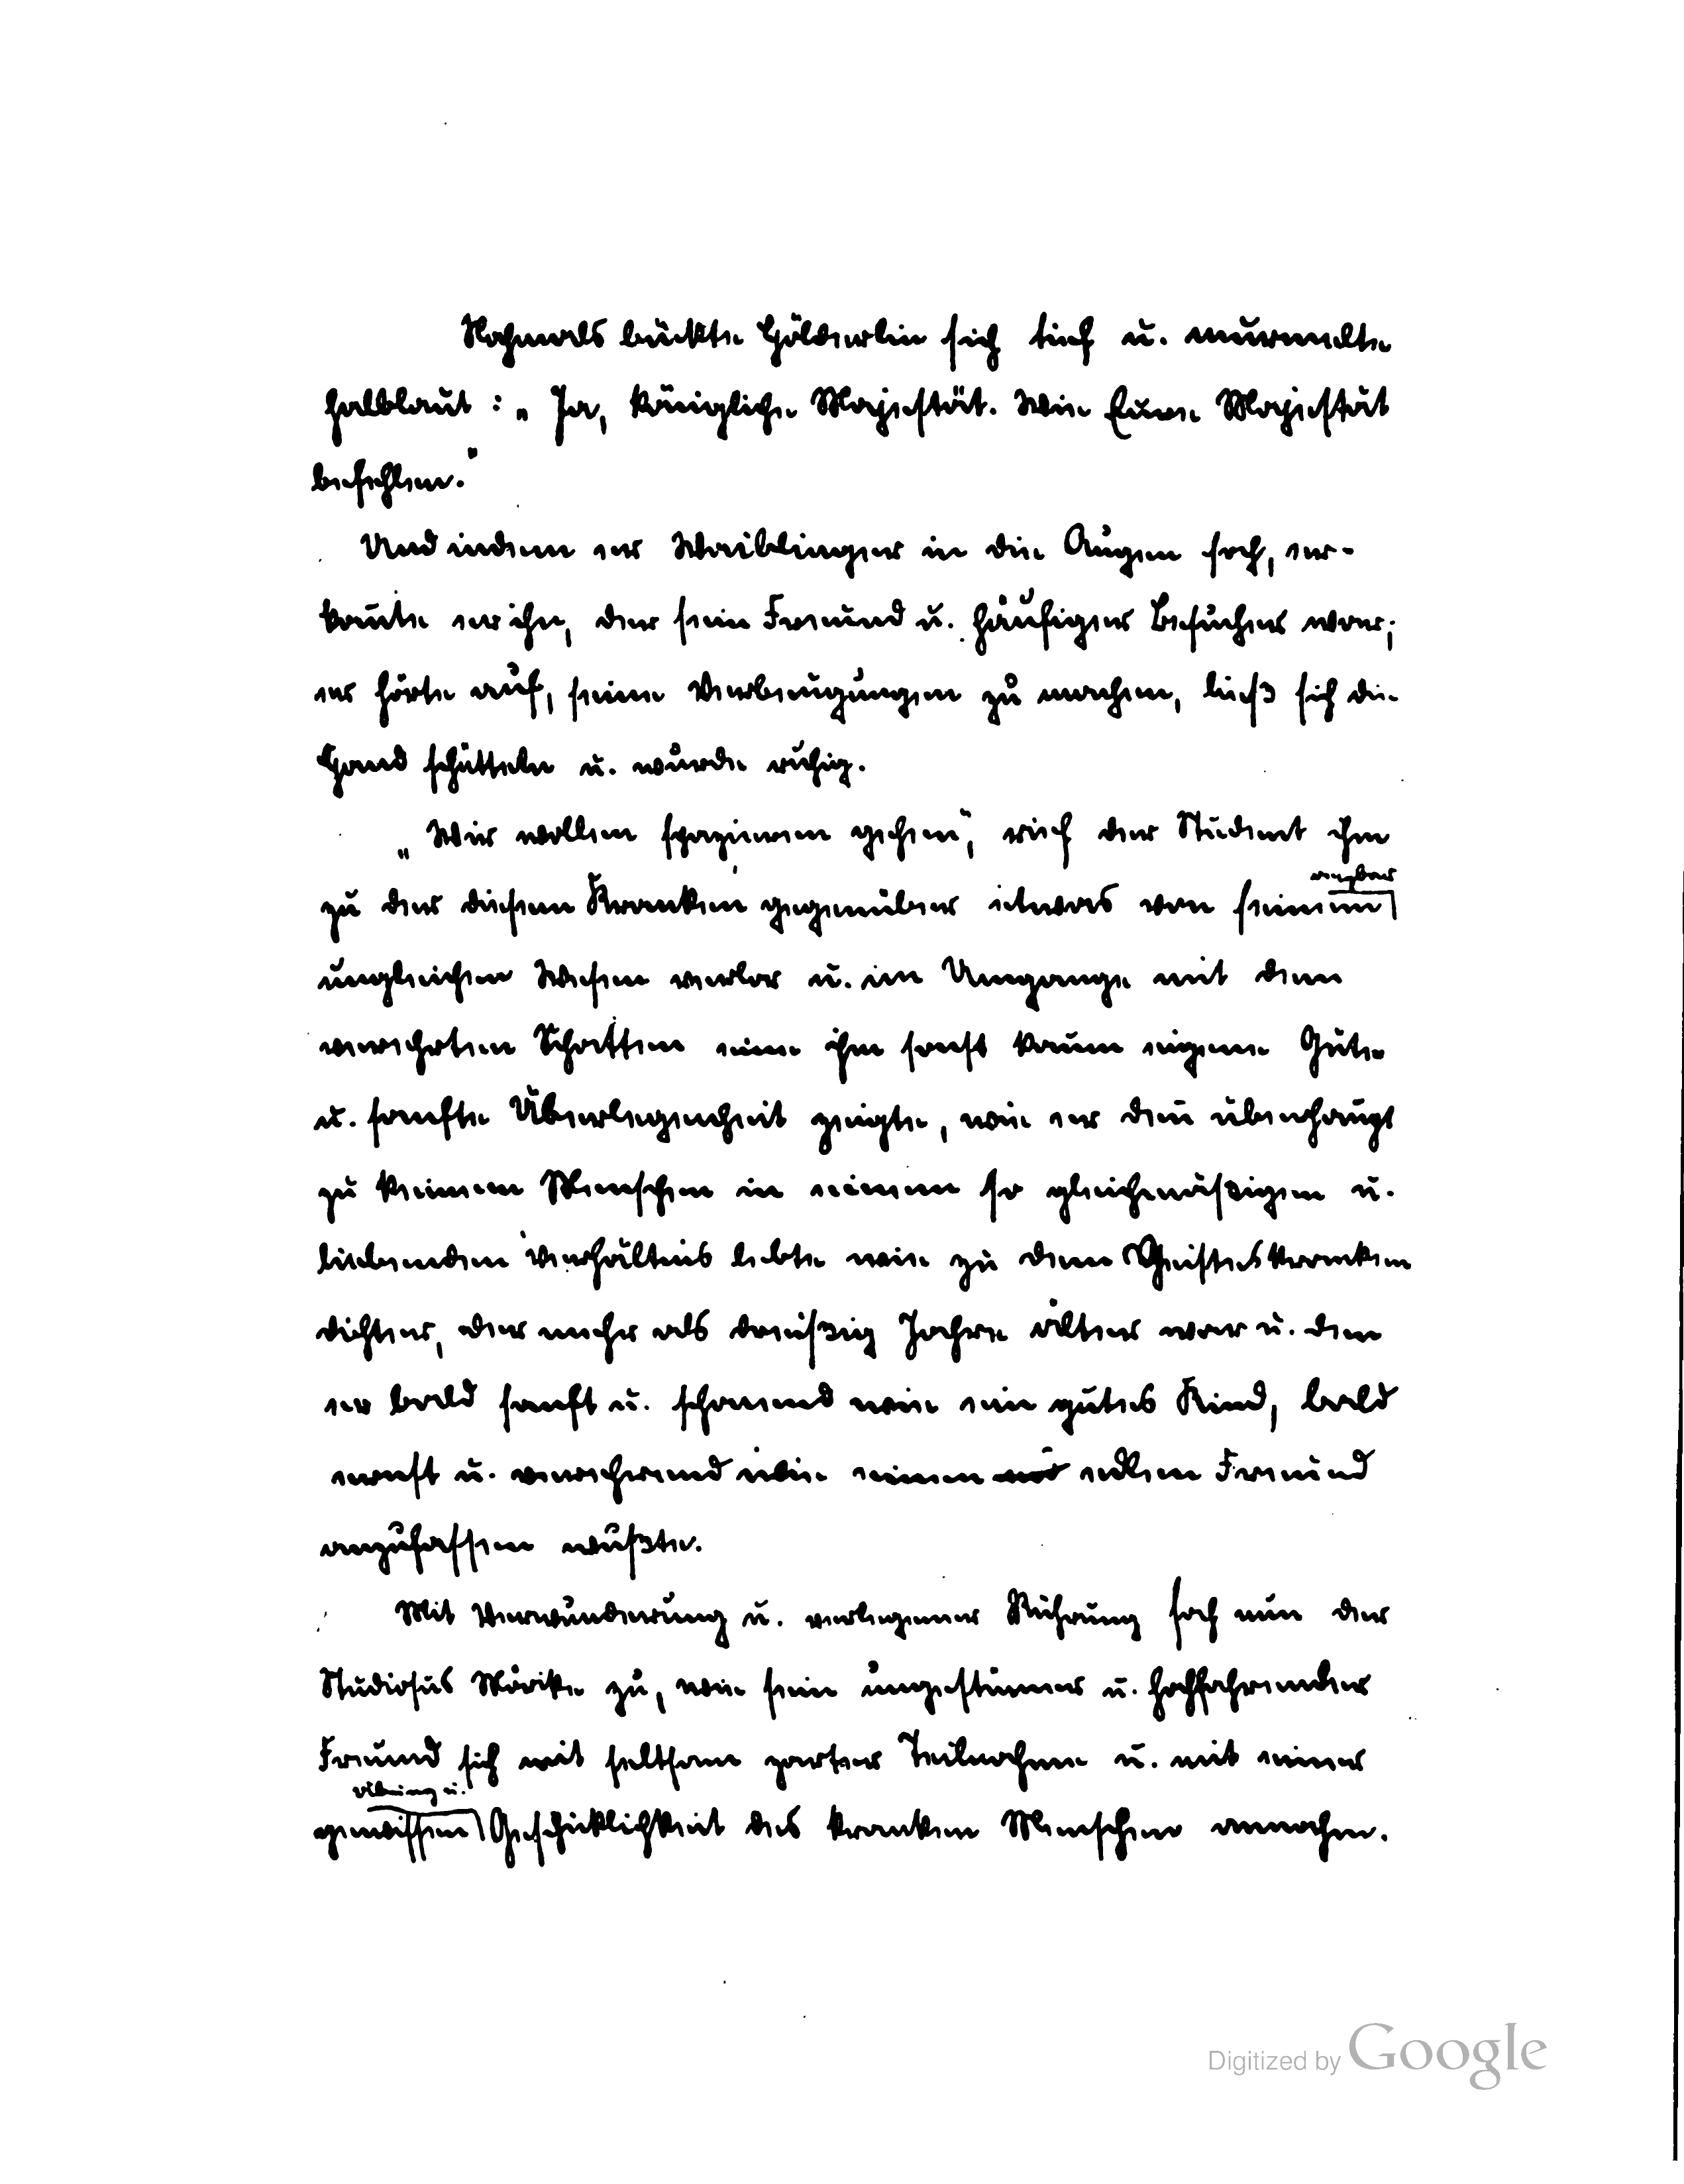 Nochmals bückte Hölderlin sich tief u. murmelte
halblaut: „Ja, königliche Majestät. Wie Eure Majestät
befehlen."
Und indem er Waiblinger in die Augen sah, er-
kannte er ihn, der sein Freund u. häufiger Besucher war;
er hörte auf, seine Verbeugungen zu machen, ließ sich die
Hand schütteln u. wurde ruhig.
„Wir wollen spazieren gehen", rief der Student ihm
zu der diesem Kranken gegenüber etwas von seinem
ungleichen Wesen verlor u. im Umgange mit dem
verehrten Schatten eine ihm sonst kaum eigene Güte
u. sanfte Überlegenheit zeigte, wie er denn überhaupt
zu keinem Menschen in einem so gleichmäßigen u.
liebenden Verhältnis lebte wie zu dem Geisteskranken
dichter, der mehr als dreißig Jahre älter war u. den
er bald sanft u. schonend wie ein gutes Kind, bald
ernst u. verehrend wie einen edlen Freund
anzufassen wußte.
Mit Verwunderung u. verlegener Rührung sah nun der
Studiosus Mörike zu, wie sein ungestümer u. hochfahrender
Freund sich mit seltsam zarter Teilnahme u. mit einer
Übung u.
gewissen Geschicklichkeit des kranken Menschen annahm.
Digitized by Google